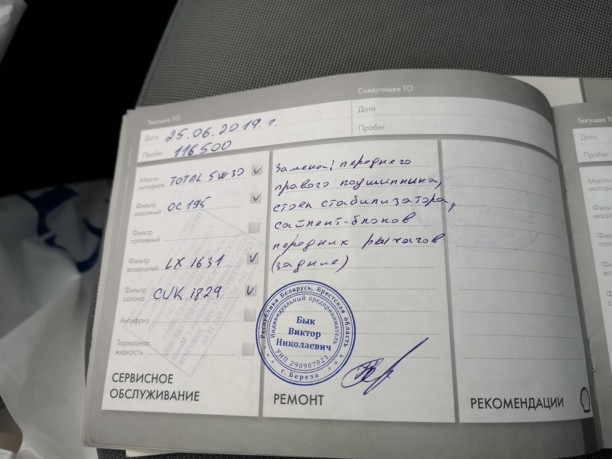 Текущее ТО
Следующее ТО
Дата 25.06.2019 г.
Дата
Пробег 116500
Пробег
Текущее ТО
Дата
Пробег
Масло моторное TOTAL 5W30
Фильтр масляный OC 195
Фильтр топливный
Фильтр воздушный LX 1631
Фильтр салона CUK 1829
Антифриз
Тормозная жидкость
СЕРВИСНОЕ
ОБСЛУЖИВАНИЕ
Замена: переднего
правого подшипника,
стоек стабилизатора,
сайлент-блоков
передних рычагов
(задние)
Республика Беларусь, Брестская область
Индивидуальный предприниматель
Бык
Виктор
Николаевич
УНП 290987821
г. Береза
РЕМОНТ
РЕКОМЕНДАЦИИ